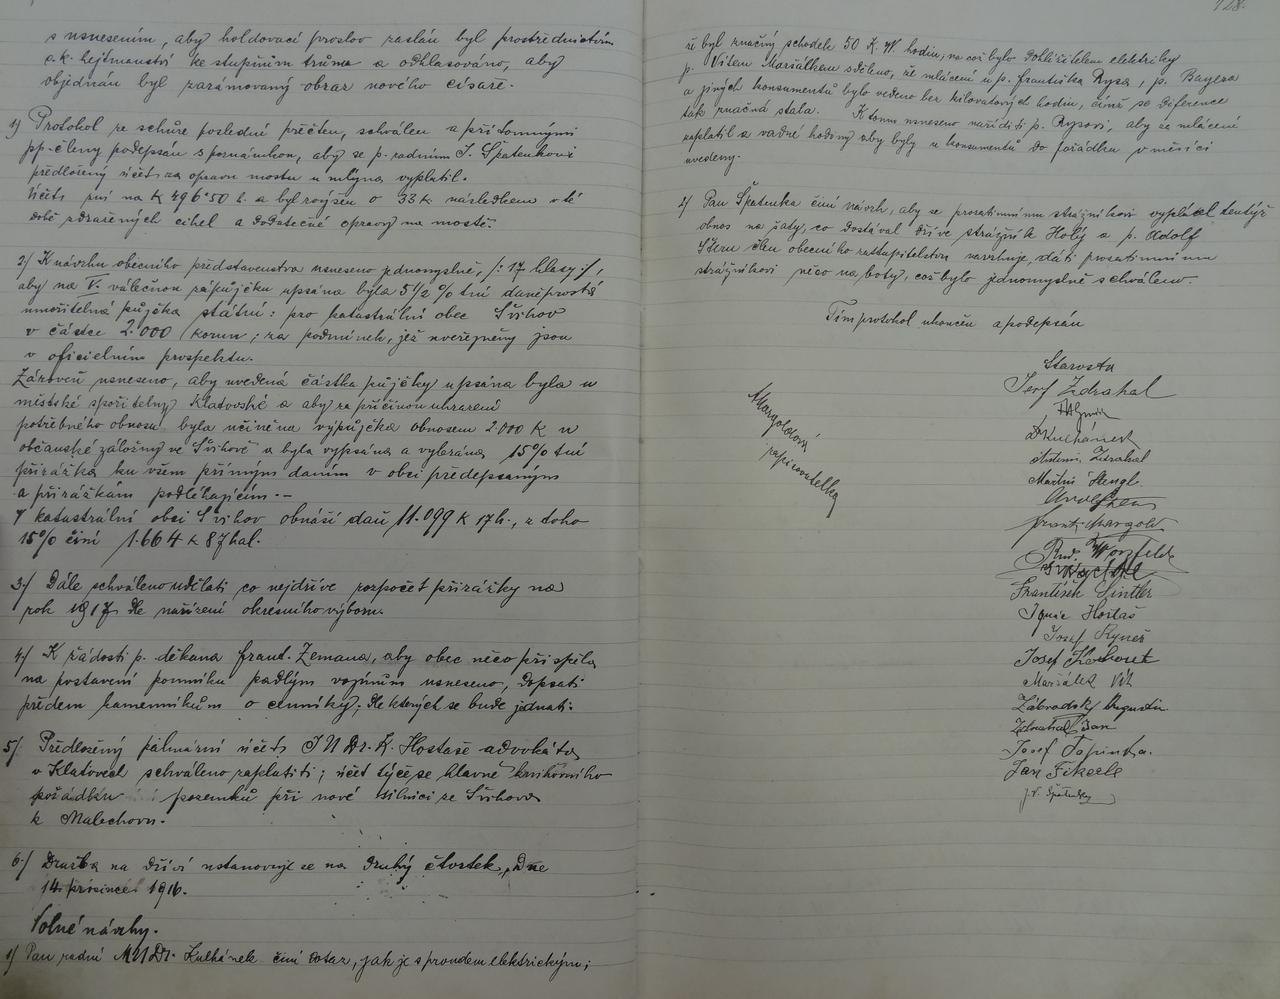 s usnesením, aby holdovací proslov zaslán byl prostřednictvím
c.k. hejtmanství ke stupňům trůnu a odhlasováno, aby
objednán byl zarámovaný obraz nového císaře.
1) Protokol ze schůze poslední přečten, schválen a přítomnými
pp. členy podepsán s poznámkou, aby se p. radním J. Špatenkovi
předložený účet za opravu mostu u mlýna vyplatil.
Účet zní na K 496·50 h. a byl zvýšen o 33 K následkem v té
době zdražených cihel a dodatečné opravy na mostě.
2./ K návrhu obecního představenstva usneseno jednomyslně, /: 17 hlasy :/,
aby na V. válečnou zápůjčku upsána byla 5 1/2 % tní daněprostá
umořitelná půjčka státní: pro katastrální obec Švihov
v částce 2.000 korun; za podmínek, jež uveřejněny jsou
v oficielním prospektu.
Zároveň usneseno, aby uvedená částka půjčky upsána byla u
městské spořitelny Klatovské a aby za příčinou uhrazení
potřebného obnosu byla učiněna výpůjčka obnosem 2.000 K u
občanské záložny ve Švihově a byla vypsána a vybrána 15% tní
přirážka ku všem přímým daním v obci předepsaným
a přirážkám podléhajícím. -
V katastrální obci Švihov obnáší daň 11.099 K 17 h., z toho
15% činí 1.664 K 87 hal.
3./ Dále schváleno udělati co nejdříve rozpočet přirážky na
rok 1917 dle nařízení okresního výboru.
4./ K žádosti p. děkana Frant. Zemana, aby obec něco přispěla
na postavení pomníku padlým vojínům usneseno, dopsati
předem kamenníkům o cenníky, dle kterých se bude jednati.
5/ Předložený palmární účet JUDr. K. Hostaše advokáta
v Klatovech schváleno zaplatiti; účet týče se hlavně knihovního
pořádku pozemků při nové silnici ze Švihova
k Malechovu.
6./ Dražba na dříví ustanovuje se na druhý čtvrtek, dne
14. prosince 1916.
Volné návrhy.
1) Pan radní MUDr. Kulhánek činí dotaz, jak je s proudem elektrickým;
128.
že byl značný schodek 50 K. W. hodin, na což bylo dohližitelem elektriky
p. Vítem Maršálkem sděleno, že mlácení u p. Františka Rysa, p. Bayera
a jiných konsumentů bylo vedeno bez kilovatových hodin, čímž se diference
tak značná stala. K tomu usneseno naříditi p. Rysovi, aby za mlácení
zaplatil a vadné hodiny aby byly u konsumentů do pořádku v měsíci
uvedeny.
2/ Pan Špatenka činí návrh, aby se prozatimnímu strážníkovi vyplácel tentýž
obnos na šaty, co dostával dříve strážník Holý a p. Adolf
Stern člen obecního zastupitelstva navrhuje, dáti prozatimnímu
strážníkovi něco na boty, což bylo jednomyslně schváleno.
Tím protokol ukončen a podepsán
Starosta
Josef Zdrahal
Dr Kulhánek
Antonín Zdrahal
Martin Hengl
Frant. Margold
František Sintler
Ignác Hostaš
Josef Kyneš
Josef Kohout
Maršálek Vít
Zábradský Augustin
Zdrahal Jan
Josef Topinka.
Jan Fikerle
J. V. Špatenka
Margoldová
zapisovatelka